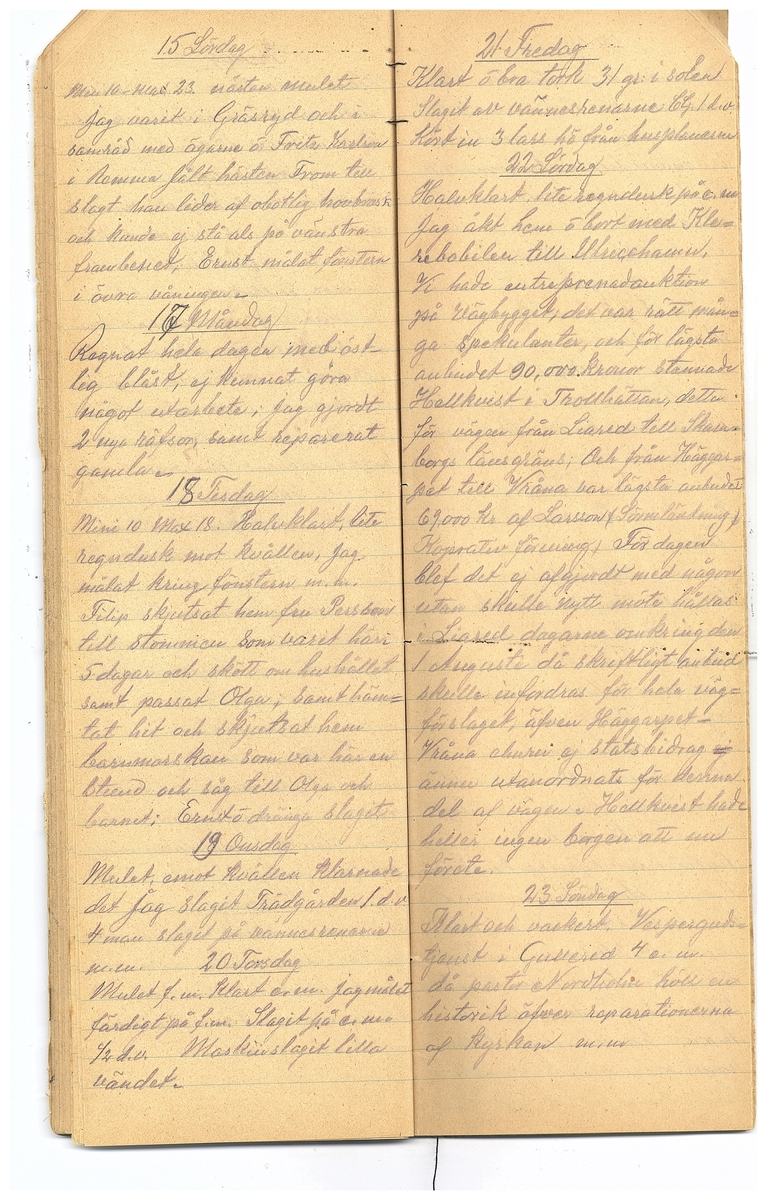 15 Lördag
Min 10 Max 23 nästan mulet
Jag varit i Gräsryd och i
samråd med ägarne ö Fritz Karlson
i Remma fält hästen From till
slagt han lider af obotlig
och kunde ej stå als på vänstra
frambenet, Ernst målat fönstern
i övra våningen
17 Måndag
Regnat hela dagen med öst-
lig blåst, ej kunnat göra
något utarbete; Jag gjordt
2 nya räfsor, samt reparerat
gamla
18 Tisdag
Mini 10 Max 18. Halvklart, lite
regndusk mot kvällen, Jag
målat kring fönstern m.m.
Filip skjutsat hem fru Persson
till Stommen som varit här i
5 dagar och skött om hushållet
samt passat Olga; samt häm=
tat hit och skjutsat hem
barnmorskan som var här en
stund och såg till Olga och
barnet; Ernst ö dränga slagit
19 Onsdag
Mulet, emot kvällen klarnade
det Jag slagit Trädgården 1 d.v
4 man slagit på vännesrenarne
m.m.
20 Torsdag
Mulet f.m. Klart e.m. Jag målat
färdigt på f.m. Slagit på e.m.
1/2 d.v. Maskinslagit lilla
vändet.
21 Fredag
Klart ö bra tork 31 gr. i solen
Slagit av vännesrenarne EG. 1 d.v
Kört in 3 lass hö från husplanerna
22 Lördag
Halvklart, lite regndusk på e.m
Jag åkt hem ö bort med Kle=
rebobilen till Ulricehamn,
Vi hade entreprenadauktion
på Vägbygget, det var rätt mån=
ga spekulanter, och för lägsta
anbudet 90,000 kronor stannade
Hallkvist i Trollhättan, detta
för vägen från Liared till Skara=
borgs länsgräns; Och från Häggar=
pet till Vråna var lägsta anbudet
69,000 kr af Larsson (Sörmländning,)
Koprativ förening) För dagen
blef det ej afgjordt med någon
utan skulle nytt möte hållas
i Liared dagarne omkring den
1 Augusti då skriftligt anbud
skulle infordras för hela väg=
förslaget, äfven Häggarpet=
Vråna ehuru ej statsbidrag
ännu utanordnats för denna
del af vägen. Hallkvist hade
heller ingen borgen att nu
förete.
23 Söndag
Klart och vackert. Vesperguds=
tjenst i Gullered 4 e.m.
då pastor Nordholm höll en
historik öfver reparationerna
af Kyrkan m.m